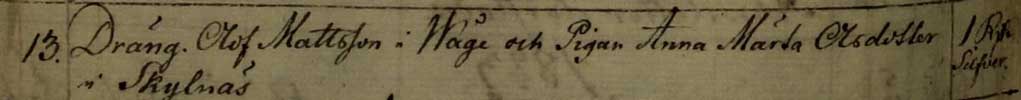 13. Dräng. Olof Mattsson i Wåge och Pigan Anna Märta Olsdotter 1 Rd
i Skylnäs Silfver.